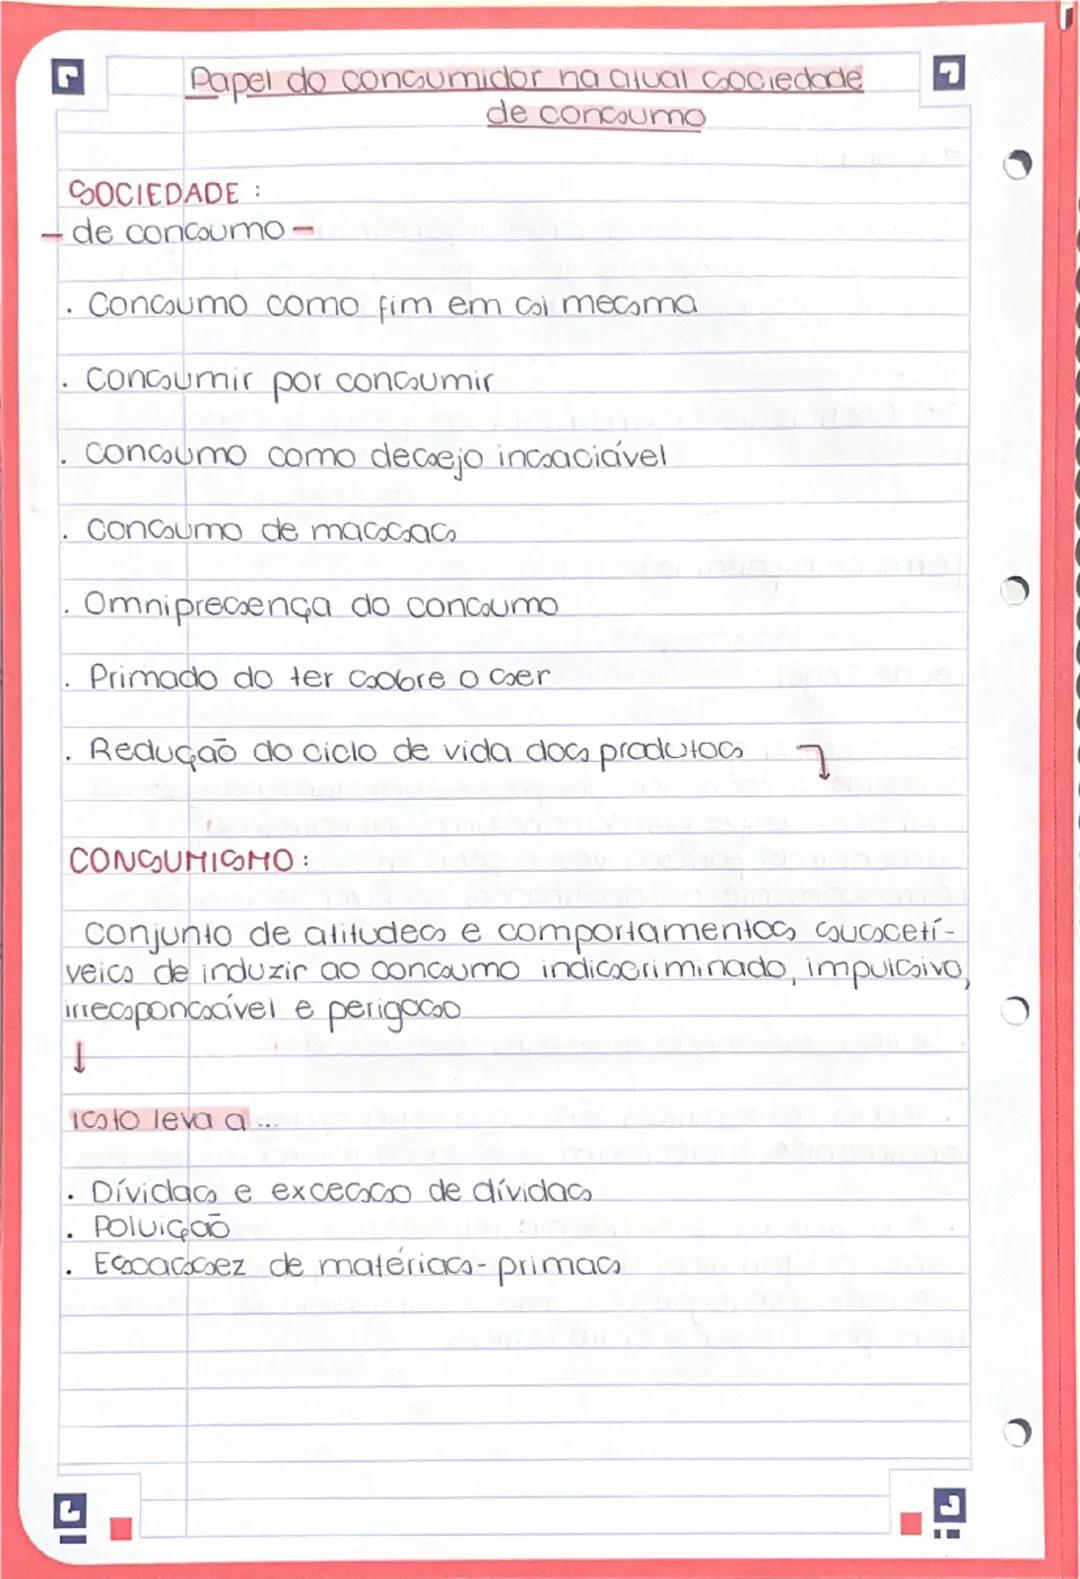 Papel do consumidor na atual sociedade
de consumo
SOCIEDADE :
- de consumo -
. Consumo como fim em si mesma
. Consumir por consumir
. Consumo como desejo insaciável
. Consumo de massas
. Omnipresença do consumo
. Primado do ter sobre o ser
. Redução do ciclo de vida dos produtos
CONSUMISMO :
Conjunto de atitudes e comportamentos suscetí-
veis de induzir ao consumo indiscriminado, impulsivo,
irresponsável e perigoso
Isto leva a ...
. Dívidas e excesso de dívidas
. Poluição
. Escassez de matérias-primas